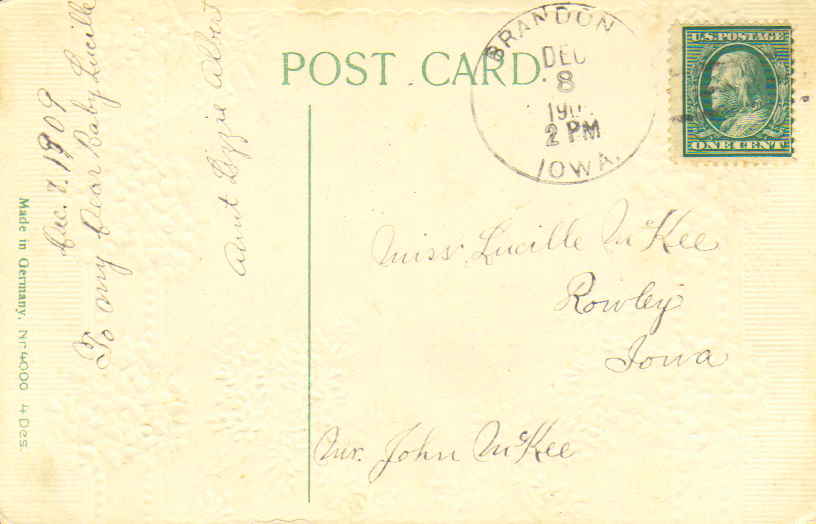 POST CARD.
BRANDON
DEC
8
2 PM
IOWA.
U.S. POSTAGE
ONE CENT
Dec. 7, 1909
To my Dear Baby Lucille
Aunt Lizzie Albert
Miss Lucille McKee
Rowley
Iowa
Mr. John McKee
Made in Germany. Nr 4000 4 Des.